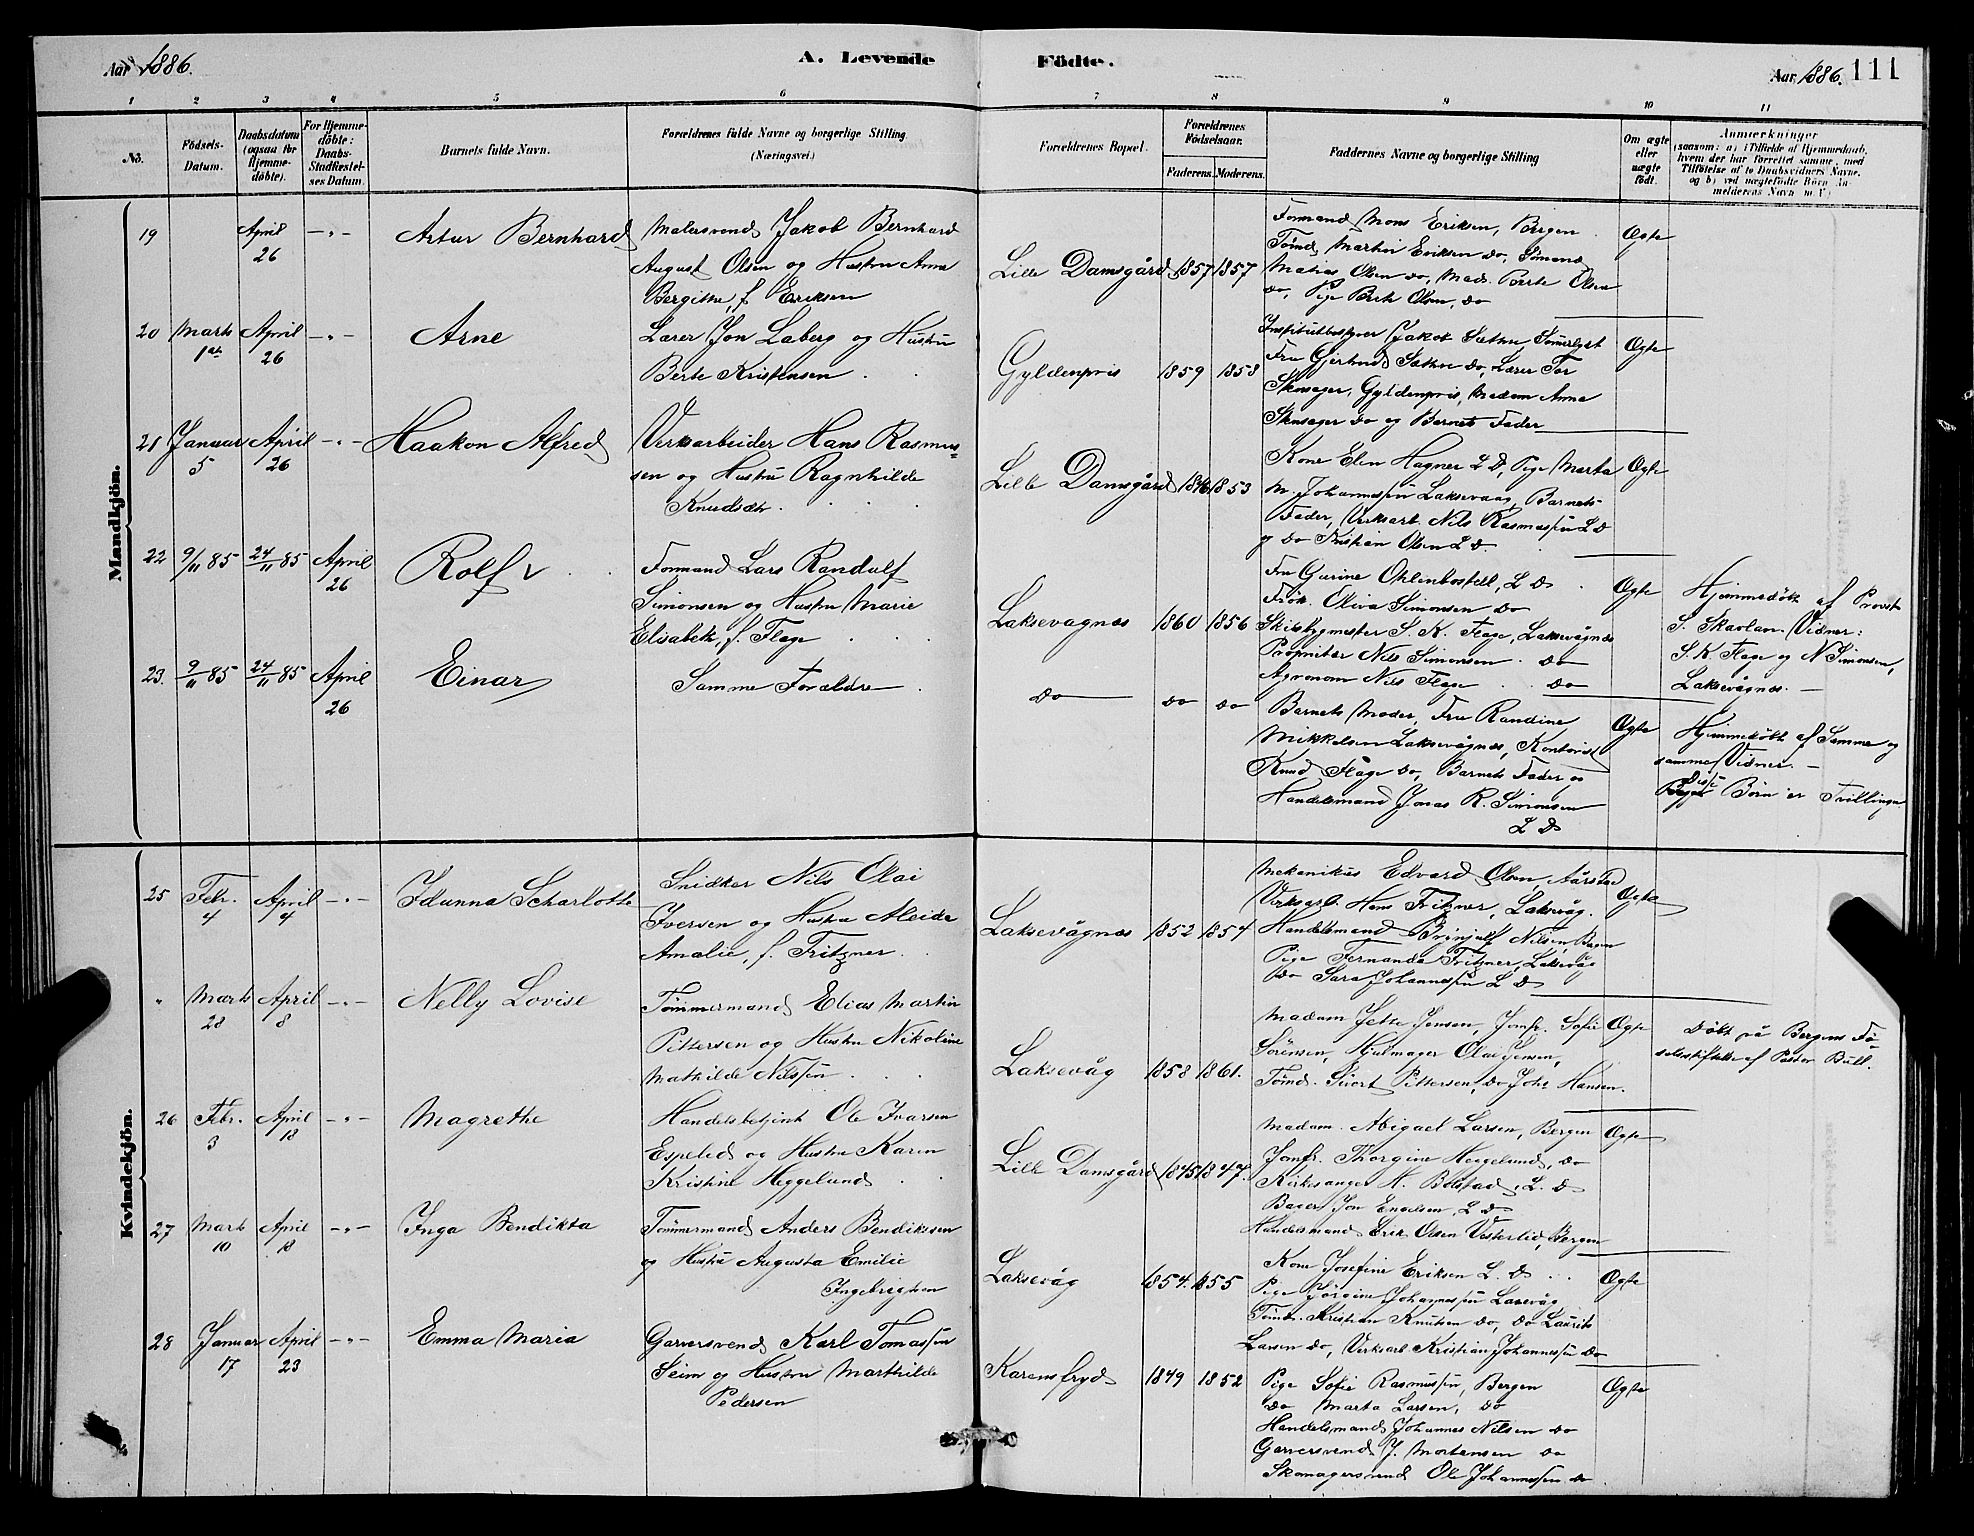 Aar 1886.
A. Levende
Födte.
Aar 1886. 111
1 2 3 4 5 6 7 8 9 10 11
No.
Födsels-
Datum.
Daabsdatum
(ogsaa for
Hjemme-
döbte).
For Hjemme-
döbte:
Daabs-
Stadfæstel-
ses Datum.
Barnets fulde Navn.
Forældrenes fulde Navne og borgerlige Stilling
(Næringsvei.)
Forældrenes Bopæl.
Forældrenes
Födselsaar.
Faderens. Moderens.
Faddernes Navne og borgerlige Stilling
Om ægte
eller
uægte
födt.
Anmærkninger
(saasom: a) i Tilfælde af Hjemmedaab,
hvem der har forrettet samme, med
Tilföielse af to Daabsvidners Navne,
og b) ved uægtefödte Börn An-
melderens Navn m. V.)
Mandkjön.
19
April
26
Artur Bernhard
Malersvend Jakob Bernhard
August Olsen og Hustru Anna
Bergithe, f. Eriksen
Lille Damsgård 1857 1857
Formand Mons Eriksen, Bergen
Tömd. Martin Eriksen do, Sömand
Matias Olsen do, Mad. Berte Olsen
do, Pige Berte Olsen, do
Ægte
20 Marts
1ste
April
26
Arne
Lærer Jon Laberg og Hustru
Berte Kristensen
Gyldenpris 1859 1858
Institutbestyrer Jakob Sæthre
Fru Gjertrud Sæthre do, Lærer Tor
Skaasager, Gyldenpris, Madam Anna
do og Barnets Fader
Ægte
21 Januar
5
April
26
Haakon Alfred
Verksarbeider Hans Rasmus-
sen og Hustru Ragnhilde
Knudsdtr.
Lille Damsgård 1846 1853
Kone Elen Hagner L D, Pige Marta
M. Johannessen Laksevaag, Barnets
Fader, Verksarb. Nils Rasmussen L D
og do Kristian Olsen L D.
Ægte
22 9/11 85 24/11 85 April
26
Rolf
Formand Lars Randulf
Simonsen og Hustru Marie
Elisabeth, f. Flage
Laksevågnæs 1860 1856
Fru Gurine Ohlenbostell, L D
Frök. Oliva Simonsen do
Skibsbygmester S. K. Flage, Laksevågnæs
Proprietær Nils Simonsen do
Agronom Nils Flage do
Ægte
Hjemmedöbt af Provst
S. Skavlan. Vidner:
S. K. Flage og N Simonsen,
Laksevågnæs.
23. 9/11 85 24/11 85 April
26
Einar
Samme Forældre
do do do
Barnets Moder, Fru Randine
Mikkelsen Laksevågnæs, Kontorist
Knud Flage do, Barnets Fader og
Handelsmand Jonas R. Simonsen
L D
Ægte
Hjemmedöbt af Samme og
samme Vidner.
Disse
Börn er Tvillinger
Kvindekjön.
25 Febr.
4
April
4
Idunna Scharlotte
Snidker Nils Olai
Iversen og Hustru Aleida
Amalie, f. Fritzner
Laksevågnæs 1852 1854
Mekanikus Edvard Olsen, Aarstad
Verksarb. Hans Fritzner, Laksevåg.
Handelsmand Brinjulf Nilsen, Bergen
Pige Fernanda Fritzner, Laksevåg
do Sara Johannessen L D
Ægte
" Marts
28
April
8
Nelly Lovise
Tömmermand Elias Martin
Pittersen og Hustru Nikoline
Mathilde Nilssen
Laksevåg 1858 1861.
Madam Jette Jensen, Jomfr. Sofie
Sörensen, Hjulmager Olai Jensen,
Tömd. Sivert Pittersen, do Johs Hansen.
Ægte
Döbt på Bergens Fö-
selsstiftelse af Pastor Bull.
26 Febr.
3
April
18
Magrethe
Handelsbetjent Ole Ivarsen
Espelid og Hustru Karen
Kristine Heggelund
Lille Damsgård 1845 1847.
Madam Abigael Larsen, Bergen
Jomfr. Thorgine Heggelund, do
Kirkesanger H. Bolstad, L. D
Bager Jon Engelsen, L D
Handelsmand Erik Olsen Vesterlid, Bergen
Ægte
27 Marts
10
April
18
Inga Bendikta
Tömmermand Anders Bendiksen
og Hustru Augusta Emilie
Ingebrigtsen
Laksevåg 1854. 1855
Kone Josefine Eriksen L. D
Pige Jörgine Johannessen Laxevåg
Tömdr. Kristian Knutsen do, do Laurits
Larsen do, Verksarb Kristian Johannessen do
Ægte
28 Januar
17
April
23
Emma Maria
Garversvend Karl Tomassen
Seim og Hustru Marthilde
Pedersen
Karensfryd 1849 1852
Pige Sofie Rasmussen, Bergen
do Marta Larsen, do
Handelsmand Johannes Nilsen do
Garversvend J. Mortensen do
Skomagersvend Ole Johannessen do
Ægte